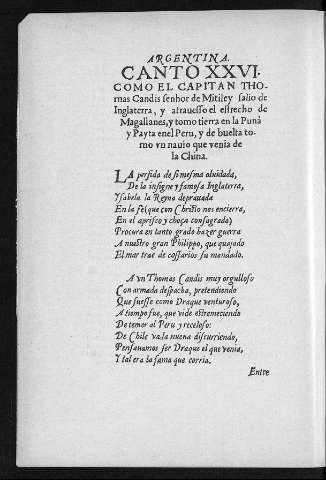 ARGENTINA.
CANTO XXVI.
COMO EL CAPITAN THO-
mas Candis señor de Mitiley salio de
Inglaterra, y atrauesso el estrecho de
Magallanes, y tomo tierra en la Punà
y Payta en el Peru, y de buelta to-
mo vn nauio que venia de
la China.
LA perfida de si mesma oluidada,
De la insigne y famosa Inglaterra,
Ysabela la Reyna deprauada
En la fè (que con Christo nos encierra,
En el aprisco y choça consagrada)
Procura en tanto grado hazer guerra
A nuestro gran Philippo, que quajado
El mar trae de cossarios su mandado.
A vn Thomas Candis muy orgulloso
Con armada despacha, pretendiendo
Que fuesse como Draque venturoso,
A tiempo fue, que vide estremeciendo
De temor al Peru y receloso:
De Chile va la nueua discurriendo,
Pensauamos ser Draque el que venia,
Y tal era la fama que corria.
Entre